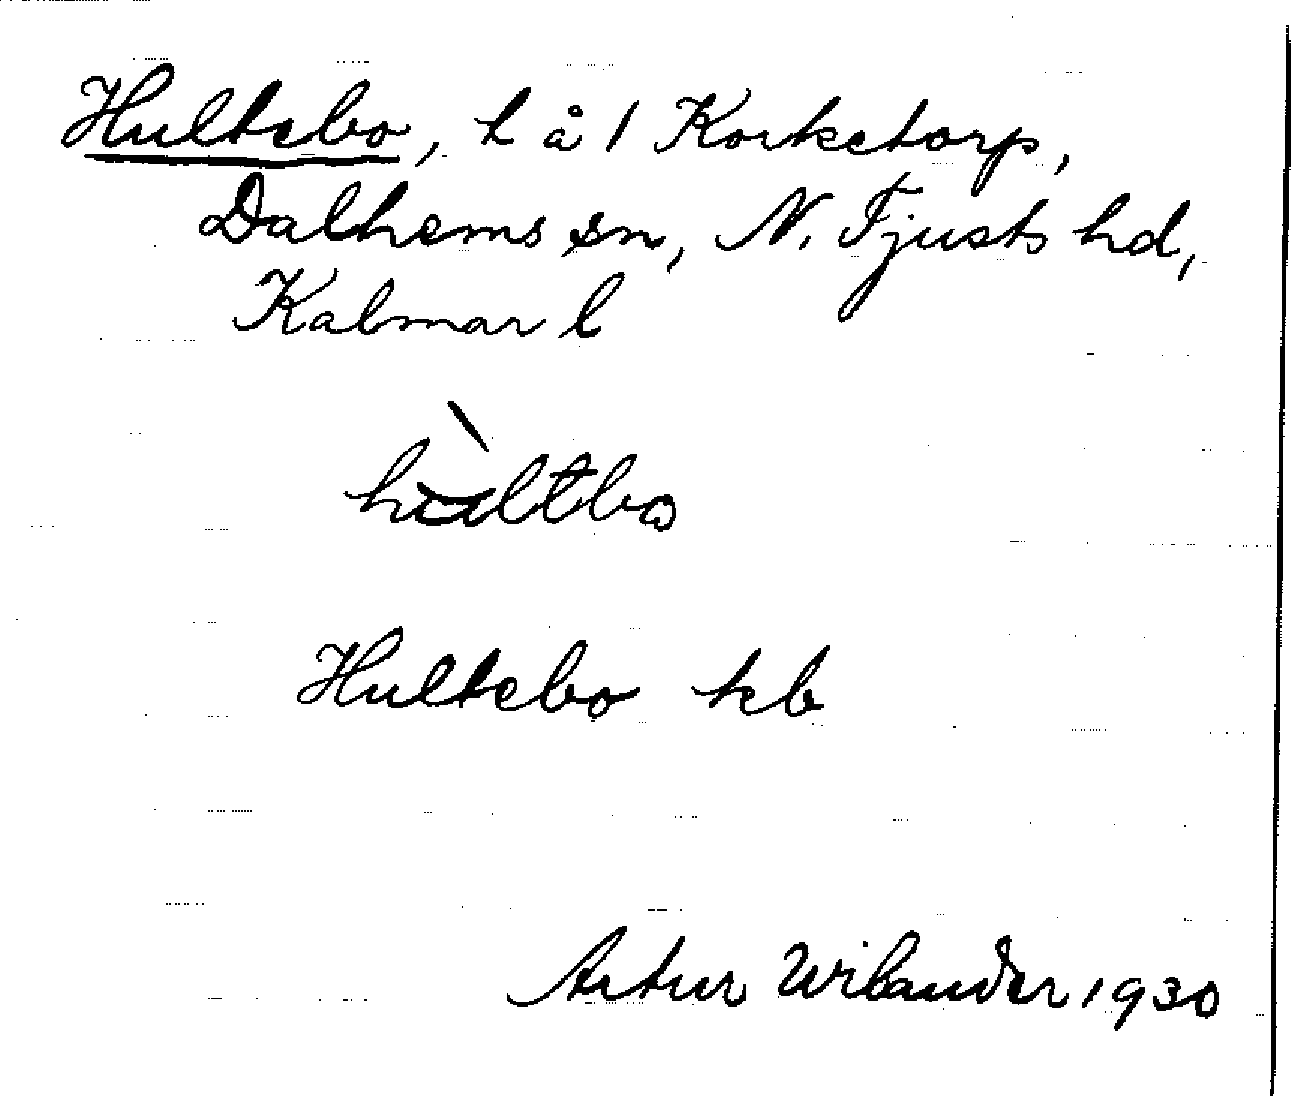 Hultebo, t å 1 Korketorp,
Dalhems sn, N. Tjusts hd,
Kalmar l
hùltbo
Hultebo kb
Artur Wilander 1930